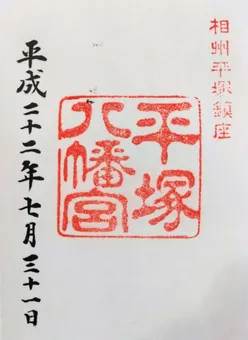 相州平塚鎮座
平塚
八幡宮
平成二十二年七月三十一日